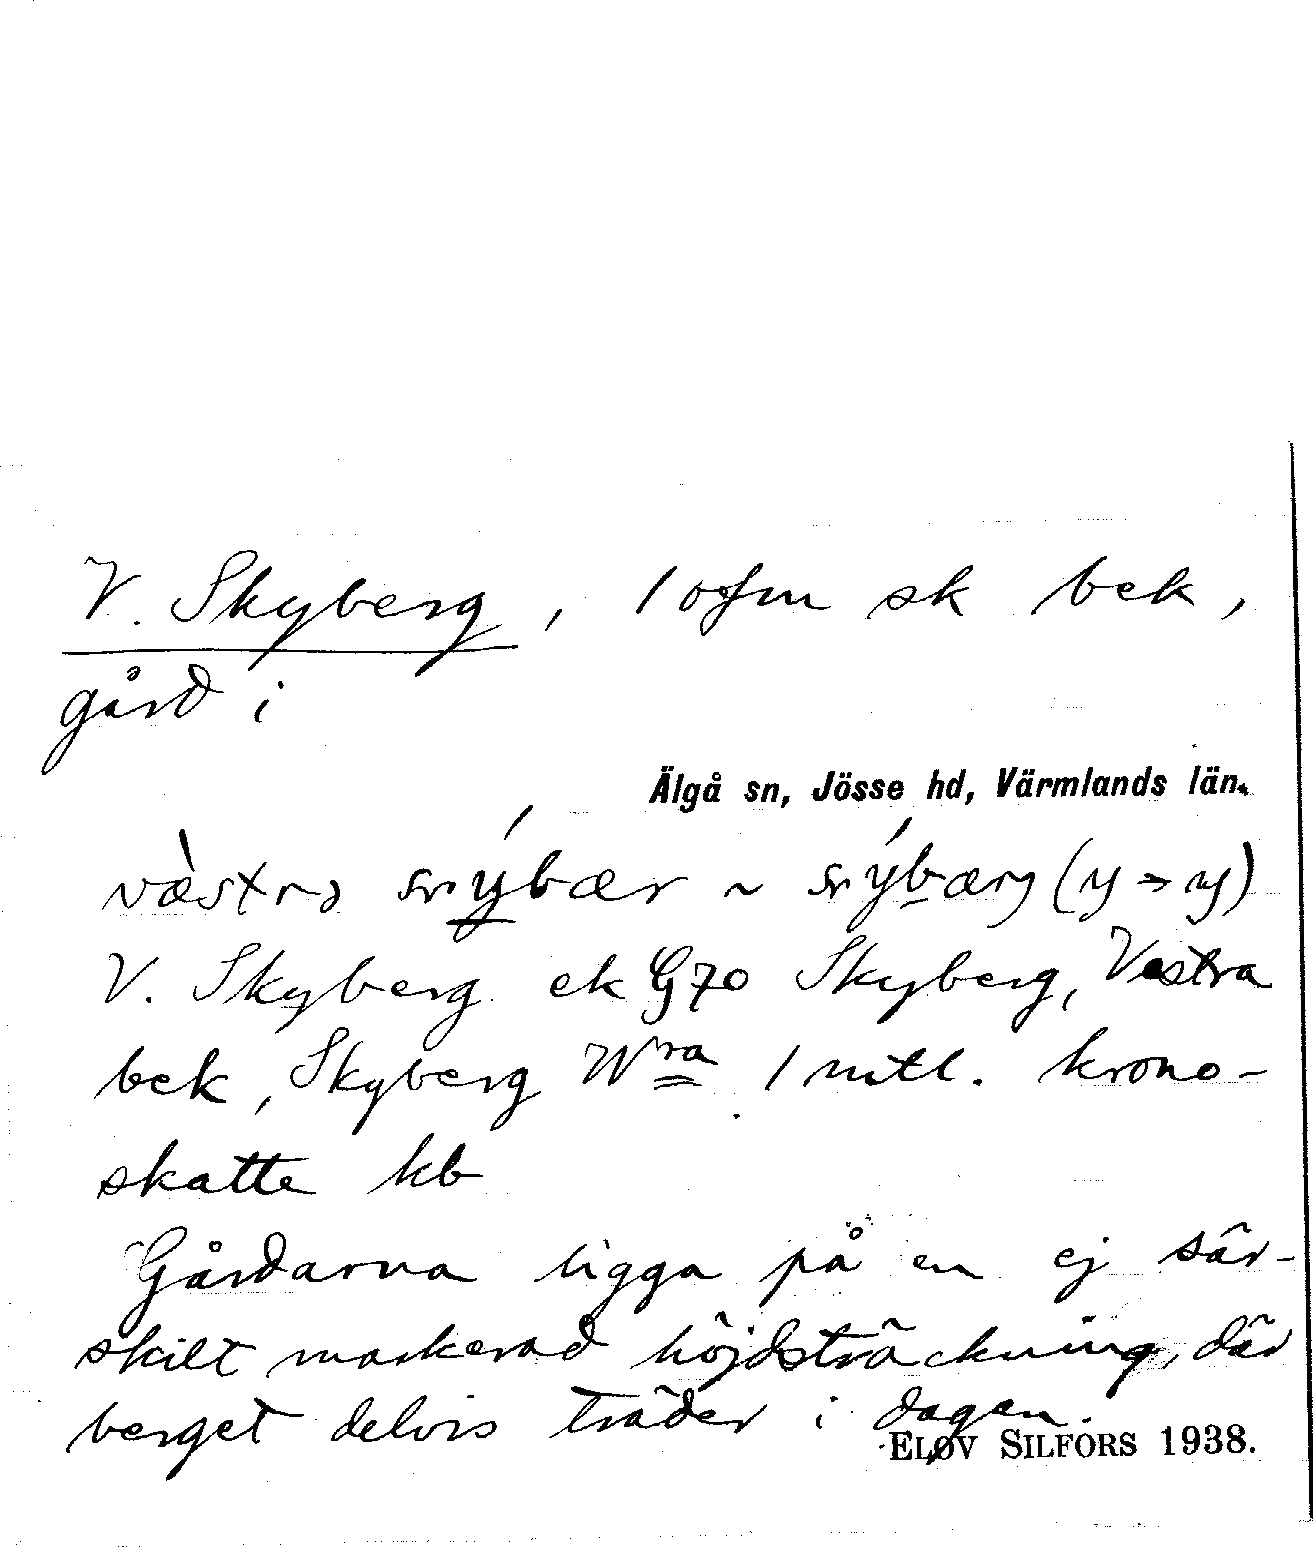 V. Skyberg, 1 ofm sk bek,
gård i
Älgå sn, Jösse hd, Värmlands län.
V. Skyberg ek G70 Skyberg, Vestra
bek, Skyberg Wra 1 mtl. krono-
skatte kb
Gårdarna ligga på en ej sär-
skilt markerad höjdsträckning, där
berget delvis träder i dagen.
ELOV SILFORS 1938.